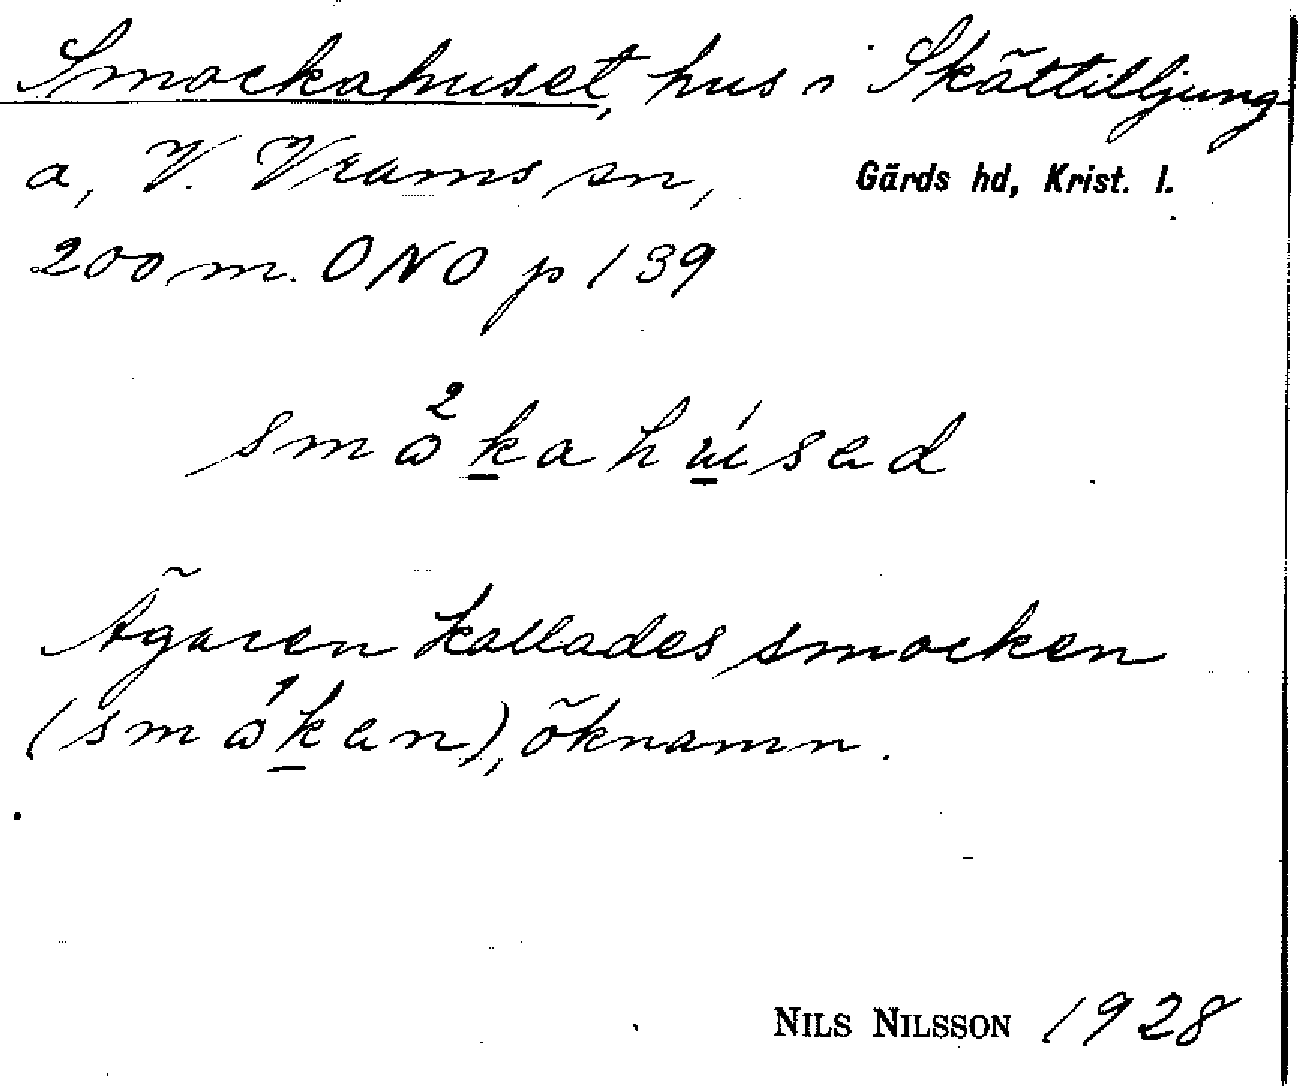 Smockahuset, hus i Skättilljung-
a, V. Vrams sn, Gärds hd, Krist. l.
200 m. ONO p 139
småkahúsad
Ägaren kallades smocken
(småkan), öknamn.
NILS NILSSON 1928